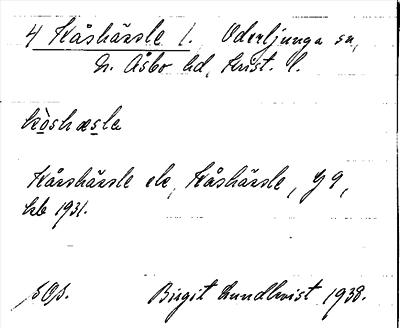 4 Kåshässle l. Oderljunga sn,
N. Åsbo hd, Krist. l.
kòshæsle
Kårshässle ek, Kåshässle, J 9,
kb 1931.
SOs.
Birgit Lundkvist 1938.